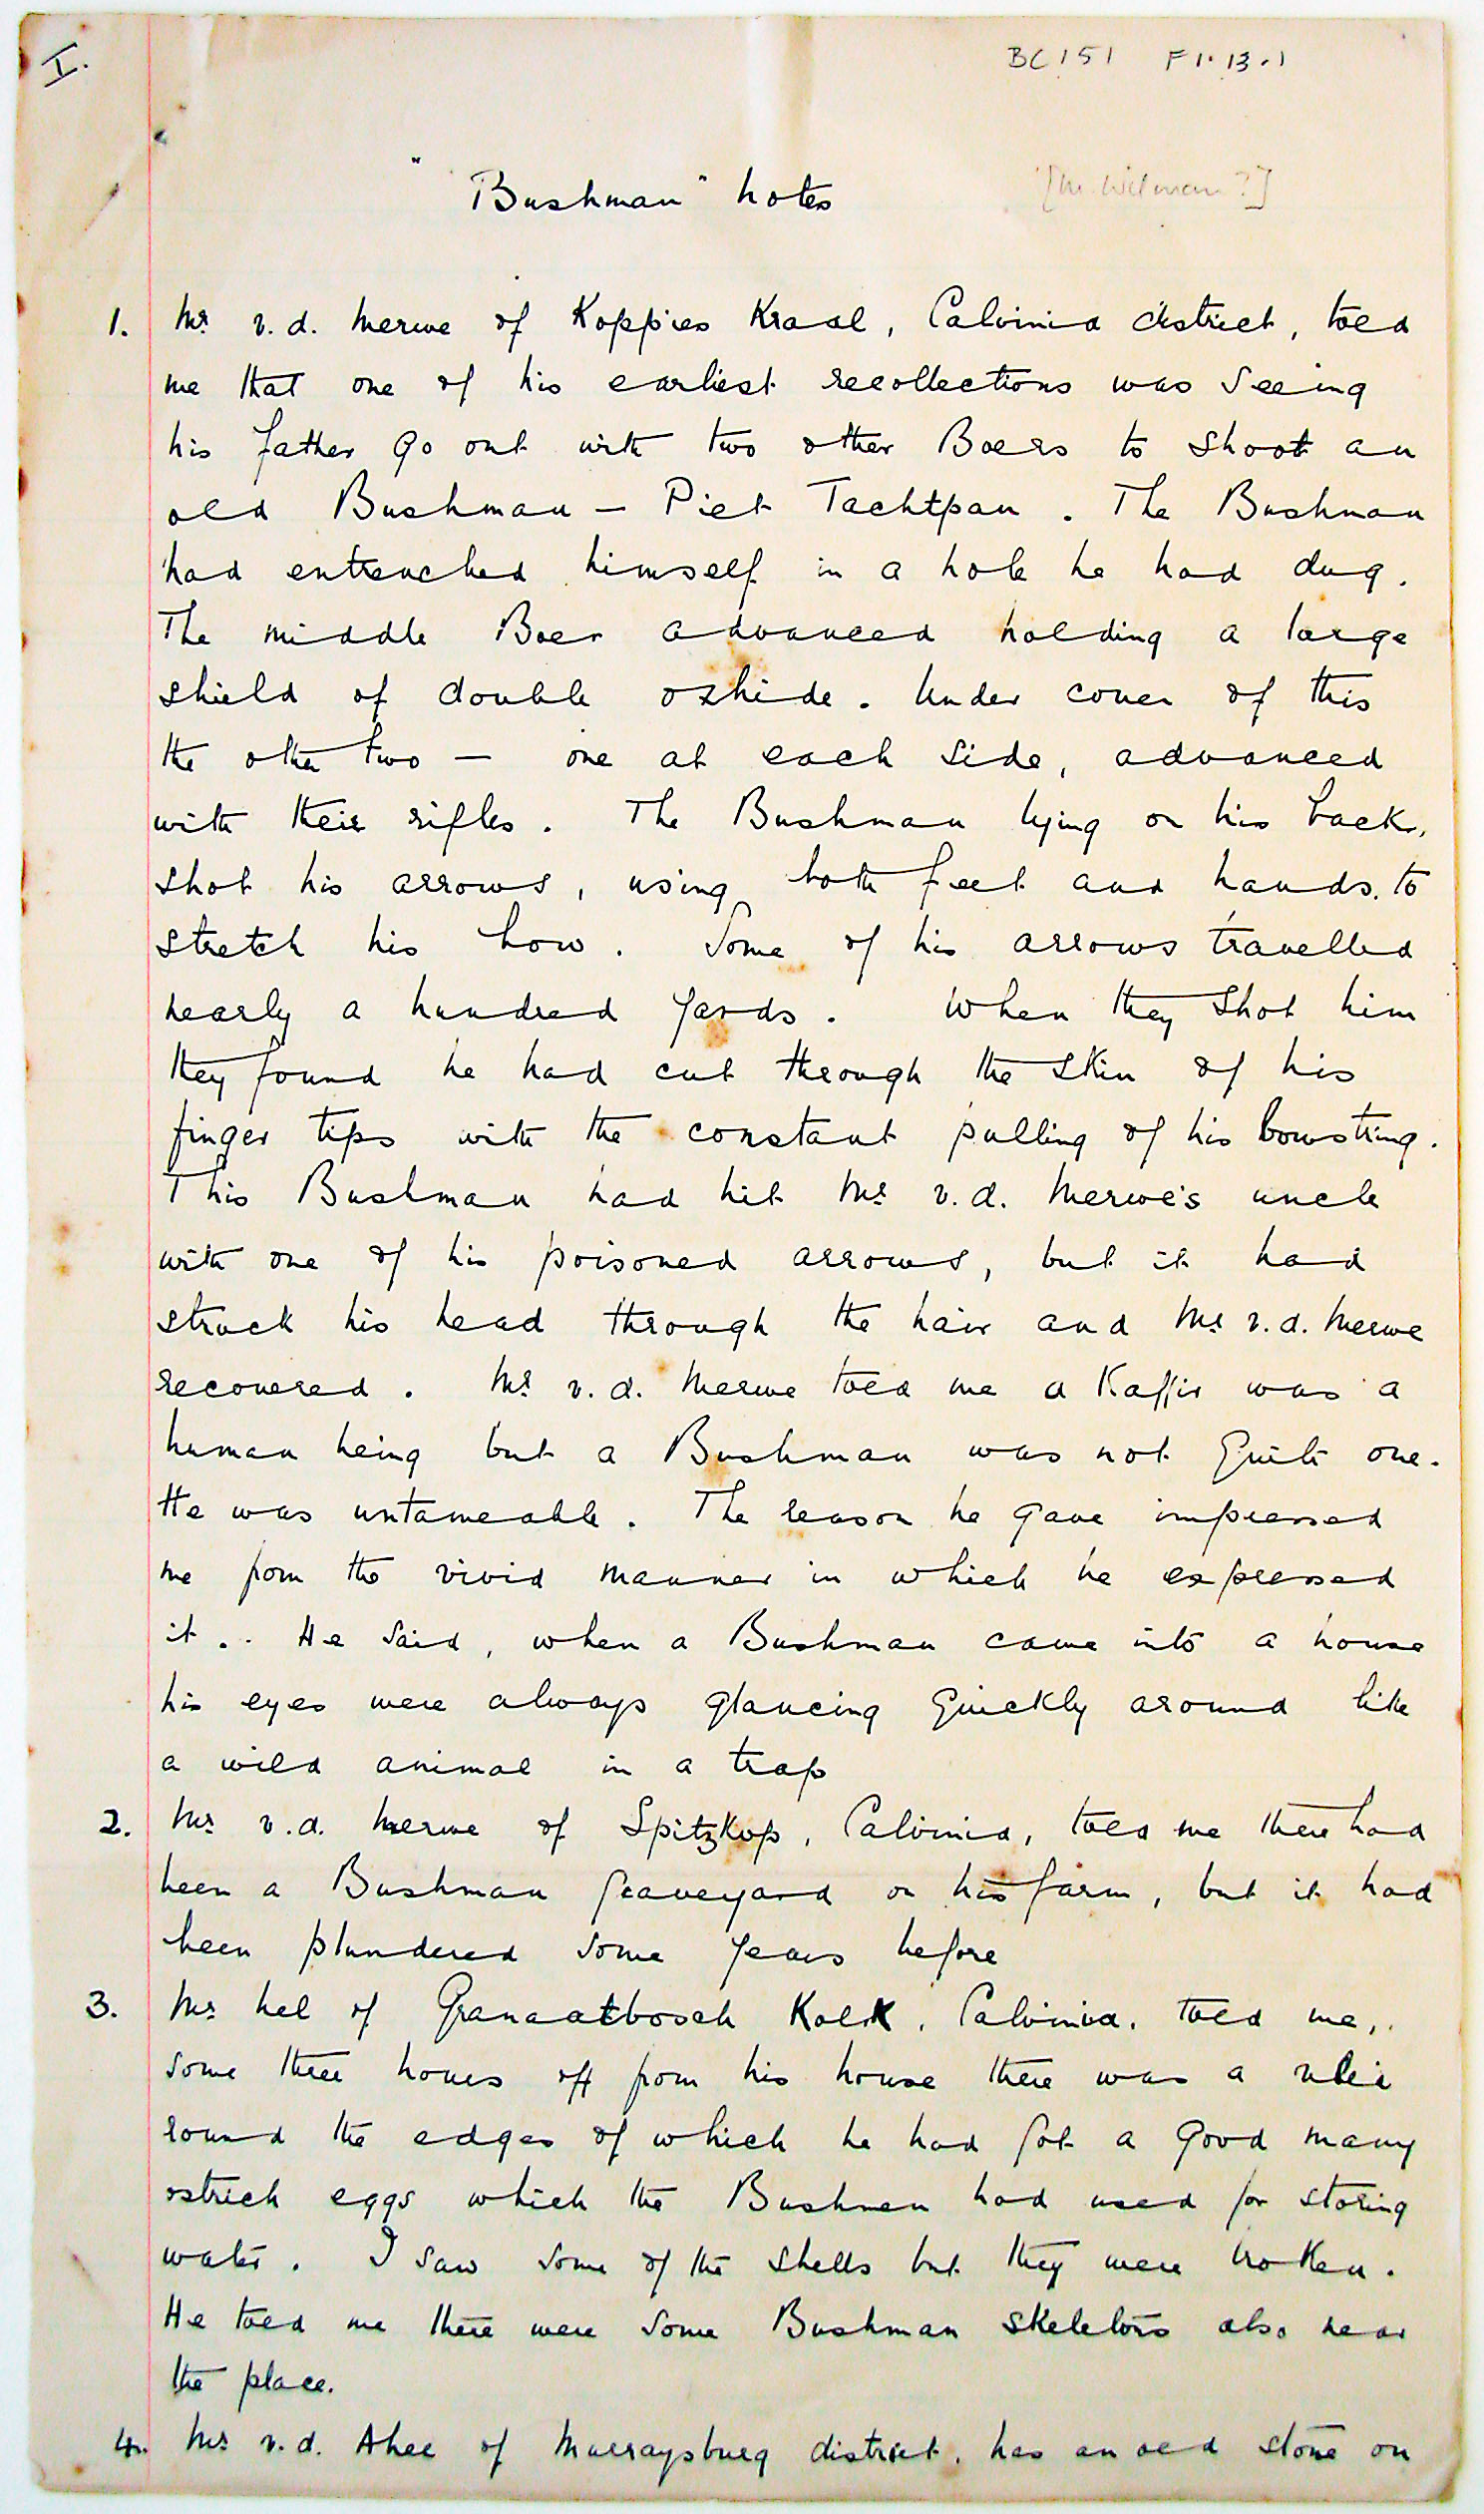 I.
BC 151 F1.13.1
"Bushman" notes
[M. Wilman?]
1. Mr v.d. Merwe of Koppies Kraal, Calvinia district, told
me that one of his earliest recollections was seeing
his father go out with two other Boers to shoot an
old Bushman – Piet Tachtpan. The Bushman
had entrenched himself in a hole he had dug.
The middle Boer advanced holding a large
shield of double oxhide. Under cover of this
the other two – one at each side, advanced
with their rifles. The Bushman lying on his back,
shot his arrows, using both feet and hands to
stretch his bow. Some of his arrows travelled
nearly a hundred yards. When they shot him
they found he had cut through the skin of his
finger tips with the constant pulling of his bowstring.
This Bushman had hit Mr v.d. Merwe's uncle
with one of his poisoned arrows, but it had
struck his head through the hair and Mr v.d. Merwe
recovered. Mr v.d. Merwe told me a Kaffir was a
human being but a Bushman was not quite one.
He was untameable. The reason he gave impressed
me from the vivid manner in which he expressed
it. He said, when a Bushman came into a house
his eyes were always glancing quickly around like
a wild animal in a trap
2. Mr v.d. Merwe of Spitzkop, Calvinia, told me there had
been a Bushman graveyard on his farm, but it had
been plundered some years before
3. Mr Nel of Granaatbosch Kolk, Calvinia, told me,
some three hours off from his house there was a vlei
round the edges of which he had got a good many
ostrich eggs which the Bushmen had used for storing
water. I saw some of the shells but they were broken.
He told me there were some Bushman skeletons also near
the place.
4. Mr v.d. Ahee of Murraysburg district, has an old stone on